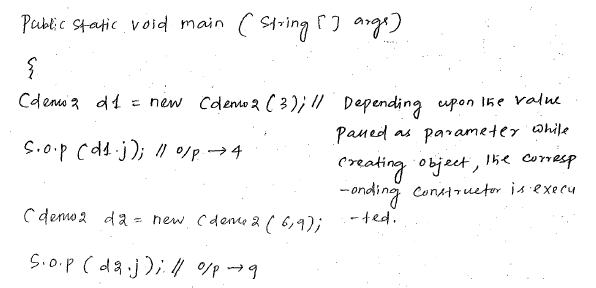 Public static void main ( String [] args )
{
Cdemo2 d1 = new Cdemo2 (3); // Depending upon the value
passed as parameter while
S.o.p (d1.j); // o/p → 4
creating object, the corresp
-onding constructor is execu
Cdemo2 d2 = new Cdemo2 (6,9);
-ted.
S.o.p ( d2.j); // o/p → 9